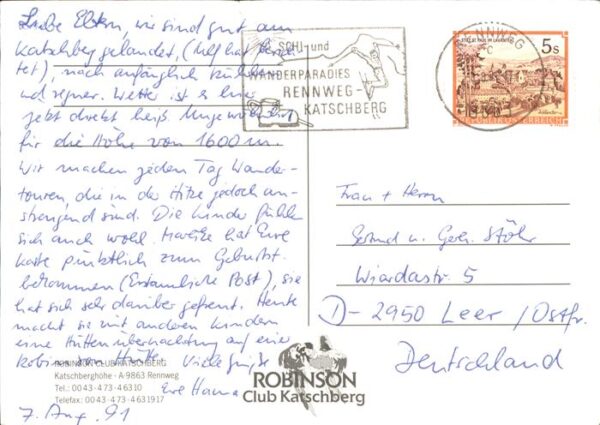 Liebe Eltern, wir sind gut am
Katschberg gelandet,
tet), nach anfänglich kühlem
und regner. Wetter ist es hier
jetzt direkt heiß. Ungewöhnlich
für die Höhe von 1600 m.
Wir machen jeden Tag Wander-
touren, die in der Hitze jedoch an-
strengend sind. Die Kinder fühlen
sich auch wohl. hat Eure
Karte pünktlich zum Geburtst.
bekommen (Erstaunliche Post), sie
hat sich sehr darüber gefreut. Heute
macht sie mit anderen Kindern
eine Hüttenübernachtung auf einer
Robinson Hütte. Viele Grüße
Eure Hanna
7. Aug. 91
ROBINSON CLUB KATSCHBERG
Katschberghöhe - A-9863 Rennweg
Tel.: 0043-473-46310
Telefax: 0043-473-4631917
SCHI- und
WANDERPARADIES
RENNWEG-
KATSCHBERG
RENNWEG
5 S
REPUBLIK ÖSTERREICH
Frau + Herrn
Gertrud u. Gerh. Stöhr
Wiardastr. 5
D-2950 Leer / Ostfr.
Deutschland
ROBINSON
Club Katschberg